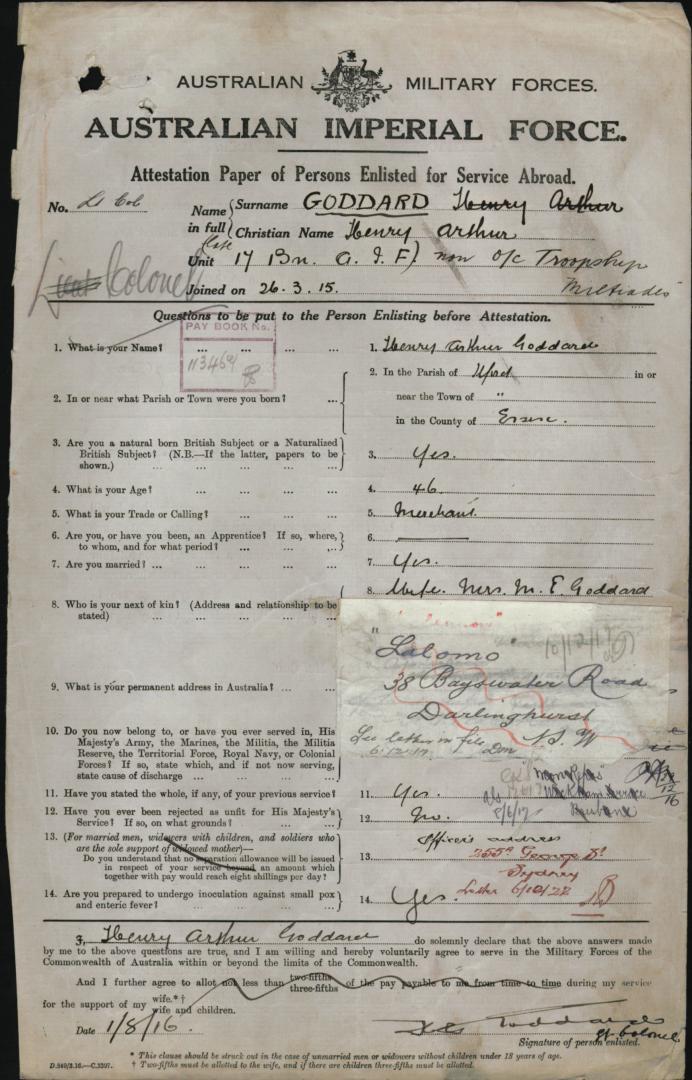 AUSTRALIAN MILITARY FORCES.
AUSTRALIAN IMPERIAL FORCE.
Attestation Paper of Persons Enlisted for Service Abroad.
No. Lt Col
Name in full
Surname GODDARD Henry Arthur
Christian Name Henry Arthur
Unit late 17 Bn. A.I.F) now O/c Troopship Miltiades
Lieut Colonel
Joined on 26.3.15.
Questions to be put to the Person Enlisting before Attestation.
PAY BOOK No.
1. What is your Name? ... ... ... ...
1. Henry Arthur Goddard
2. In or near what Parish or Town were you born? ...
2. In the Parish of Ilford in or
near the Town of "
in the County of Essex.
3. Are you a natural born British Subject or a Naturalized
British Subject? (N.B.—If the latter, papers to be
shown.) ... ... ... ...
3. Yes.
4. What is your Age? ... ... ... ...
4. 46
5. What is your Trade or Calling? ... ... ...
5. Merchant.
6. Are you, or have you been, an Apprentice? If so, where,
to whom, and for what period? ... ... ...
6.
7. Are you married? ... ... ... ... ...
7. Yes.
8. Who is your next of kin? (Address and relationship to be
stated) ... ... ... ...
8. Wife. Mrs. M. E. Goddard
10/12/17
"Lalomo"
38 Bayswater Road
Darlinghurst
N.S.W
See letter in file
6.12.17
9. What is your permanent address in Australia? ... ...
10. Do you now belong to, or have you ever served in, His
Majesty's Army, the Marines, the Militia, the Militia
Reserve, the Territorial Force, Royal Navy, or Colonial
Forces? If so, state which, and if not now serving,
state cause of discharge ... ... ...
11. Have you stated the whole, if any, of your previous service?
11. Yes.
Brisbane
8/6/17
12/16
12. Have you ever been rejected as unfit for His Majesty's
Service? If so, on what grounds? ... ...
12. No.
13. (For married men, widowers with children, and soldiers who
are the sole support of widowed mother)—
Do you understand that no separation allowance will be issued
in respect of your service beyond an amount which
together with pay would reach eight shillings per day?
13.
Officers address
255a George St
Sydney
Letter 6/10/22
14. Are you prepared to undergo inoculation against small pox
and enteric fever? ... ... ... ...
14. Yes.
I, Henry Arthur Goddard do solemnly declare that the above answers made
by me to the above questions are true, and I am willing and hereby voluntarily agree to serve in the Military Forces of the
Commonwealth of Australia within or beyond the limits of the Commonwealth.
And I further agree to allot not less than two-fifths three-fifths of the pay payable to me from time to time during my service
for the support of my wife.*† wife and children.
Date 1/8/16
Goddard
Lt Colonel
Signature of person enlisted.
* This clause should be struck out in the case of unmarried men or widowers without children under 18 years of age.
† Two-fifths must be allotted to the wife, and if there are children three-fifths must be allotted.